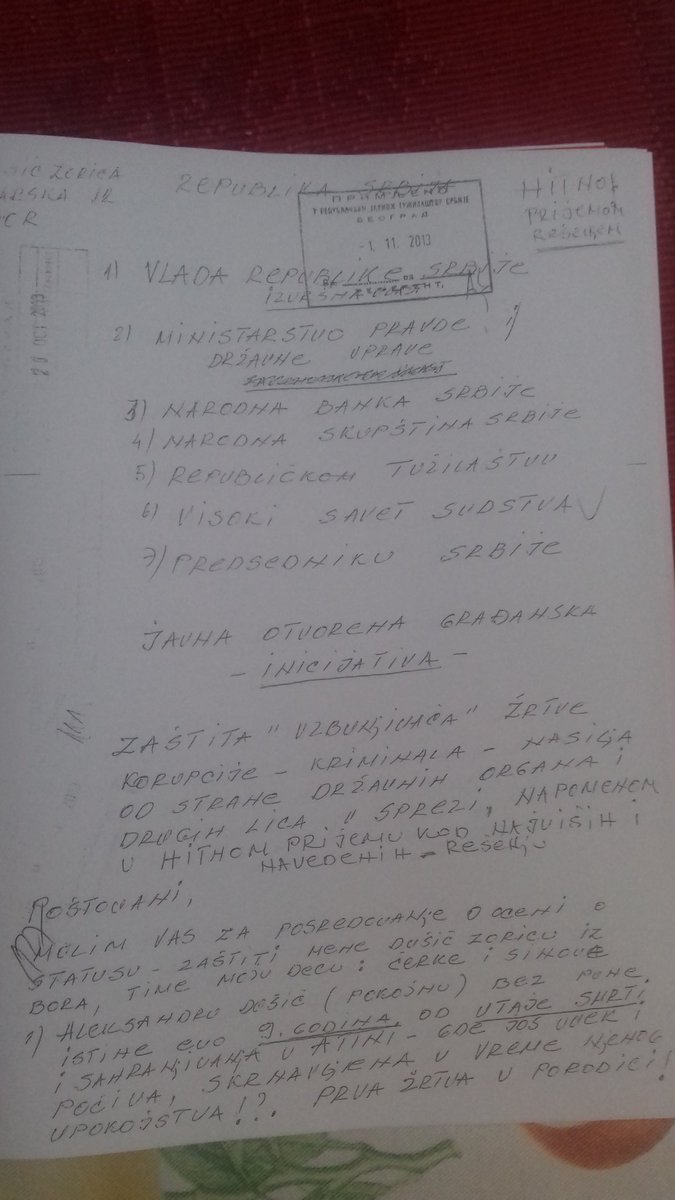 ZORICA
REPUBLIKA SRBIJA
HITNOJ
PRIJEMOM
REŠENJEM
ПРИМЉЕНО
У РЕПУБЛИЧКОМ ЈАВНОМ ТУЖИЛАШТВУ СРБИЈЕ
БЕОГРАД
-1. 11. 2013
20 OCT 2013
1) VLADA REPUBLIKE SRBIJE
IZVRŠNA
2) MINISTARSTVO PRAVDE i
DRŽAVNE UPRAVE
3) NARODNA BANKA SRBIJE
4) NARODNA SKUPŠTINA SRBIJE
5) REPUBLIČKOM TUŽILAŠTVU
6) VISOKI SAVET SUDSTVA
7) PREDSEDNIKU SRBIJE
JAVNA OTVORENA GRAĐANSKA
- INICIJATIVA -
ZAŠTITA "UZBUNJIVAČA" ŽRTVE
KORUPCIJE - KRIMINALA - NASILJA
OD STRANE DRŽAVNIH ORGANA i
DRUGIH LICA U SPREZI, NAPOMENOM
U HITNOM PRIJEMU KOD NAJVIŠIH i
NAVEDENIH - REŠENJU
POŠTOVANI,
MOLIM VAS ZA POSREDOVANJE O OCENI O
STATUSU - ZAŠTITI MENE DAŠIĆ ZORICU IZ
BORA, TIME MOJU DECU: ĆERKE i SINOVE
1) ALEKSANDRU DAŠIĆ (POKOJNU) BEZ PUNE
ISTINE EVO 9. GODINA OD UTAJE SMRTI
i SAHRANJIVANJA U ATINI - GDE JOŠ UVEK i
POČIVA, SKRNAVLJENA U VREME NJENOG
UPOKOJSTVA!?. PRVA ŽRTVA U PORODICI!